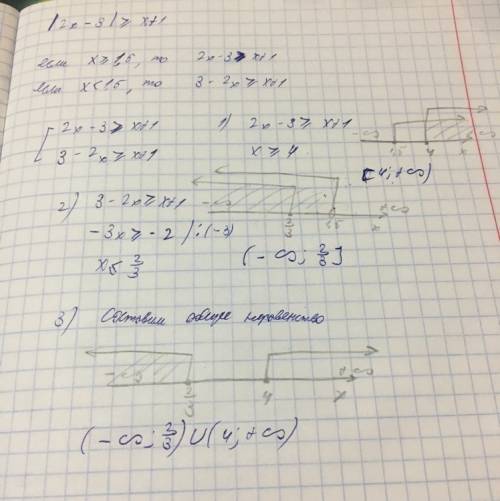 |2x-3| ≥ x+1
если x ≥ 1,5, то 2x-3 ≥ x+1
если x < 1,5, то 3-2x ≥ x+1
[ 2x-3 ≥ x+1
3-2x ≥ x+1
1) 2x-3 ≥ x+1
x ≥ 4
-∞ 1,5 4 x
[4; +∞)
2) 3-2x ≥ x+1
-3x ≥ -2 / :(-3)
x ≤ 2/3
-∞ 2/3 1,5 x +∞
(-∞; 2/3]
3) Составим общее неравенство
-∞ 2/3 4 x +∞
(-∞; 2/3) U (4; +∞)